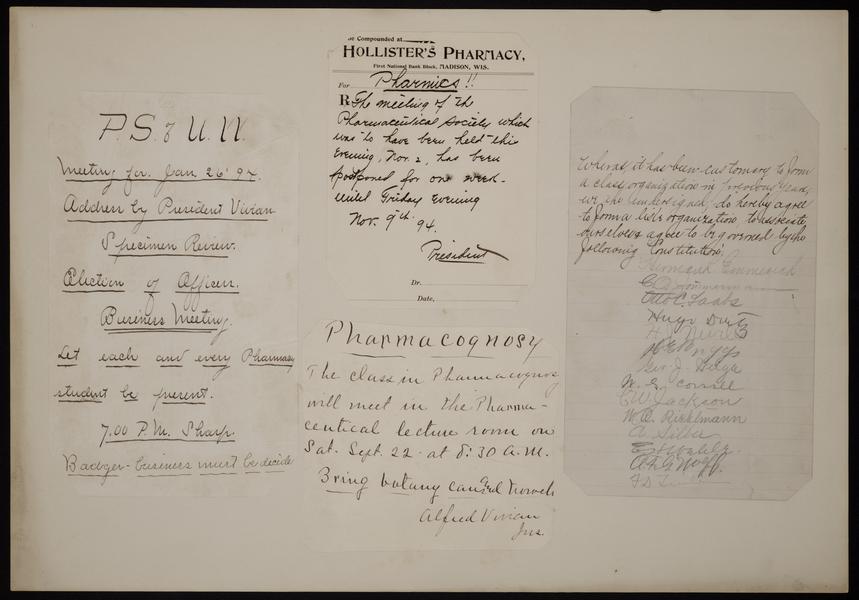 P.S. of U.W.
Meeting for Jan 26' 94.
Address by President Vivian
Specimen Review.
Election of Officers.
Business Meeting.
Let each and every Pharmacy
student be present.
7.00 P.M. Sharp.
Badger-business must be decide
Compounded at
HOLLISTER'S PHARMACY,
First National Bank Block, MADISON, WIS.
For Pharmics!!
R The meeting of the
Pharmaceutical Society which
was to have been held this
Evening, Nov. 2, has been
postponed for one week-
until Friday Evening
Nov. 9th 94.
President
Dr.
Date,
Pharmacognosy
The class in Pharmacognosy
will meet in the Pharma-
ceutical lecture room on
Sat. Sept. 22 at 8:30 A.M.
Bring botany can and trowel
Alfred Vivian
Ins.
Whereas, it has been customary to form
a class organization in previous years,
we the undersigned, do hereby agree
to form a like organization, to associate
ourselves & agree to be governed by the
following Constitution:
Hermann Emmerich
Otto C.
Hugo
H.
Geo. J.
W. S.
C. W. Jackson
W. O. Rickelmann
A.
A. G. Wolff.
F. D.